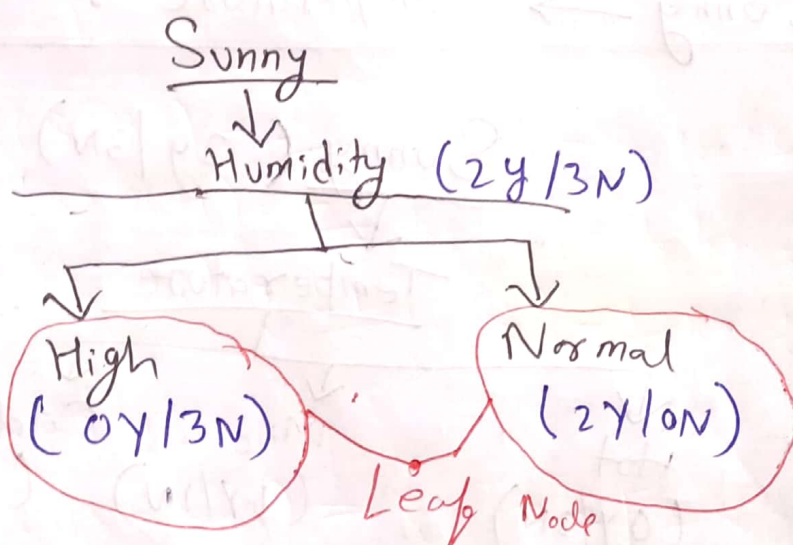 Sunny
Humidity (2Y/3N)
High
(0Y/3N)
Normal
(2Y/0N)
Leaf Node